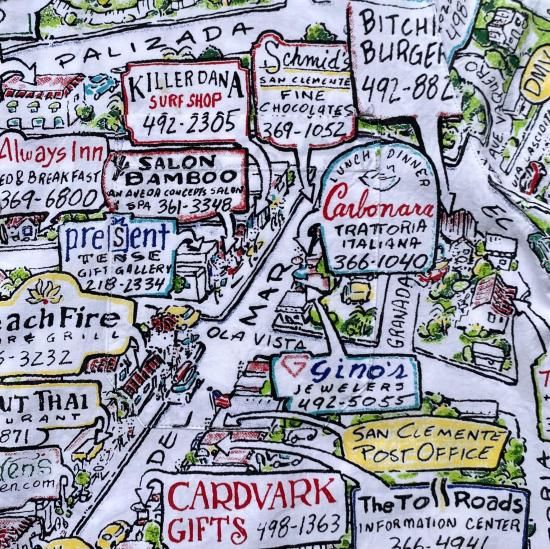 PALIZADA
KILLER DANA
SURF SHOP
492-2305
Schmid's
SAN CLEMENTE
FINE
CHOCOLATES
369-1052
BITCHI
BURGER
492-88
498-
AVE. VAQUERO
Always Inn
ED & BREAKFAST
369-6800
SALON
BAMBOO
AN AVEDA CONCEPTS SALON
& SPA 361-3348
LUNCH DINNER
Carbonara
TRATTORIA
ITALIANA
366-1040
EC
preSent
TENSE
GIFT GALLERY
218-2334
MAR
GRANADA
eachFire
R & GRILL
6-3232
OLA VISTA
Gino's
JEWELERS
492-5055
UT THAI
URANT
871
DEL
SAN CLEMENTE
POST OFFICE
ens
en.com
CARDVARK
GIFTS 498-1363
The Toll Roads
INFORMATION CENTER
366-4941